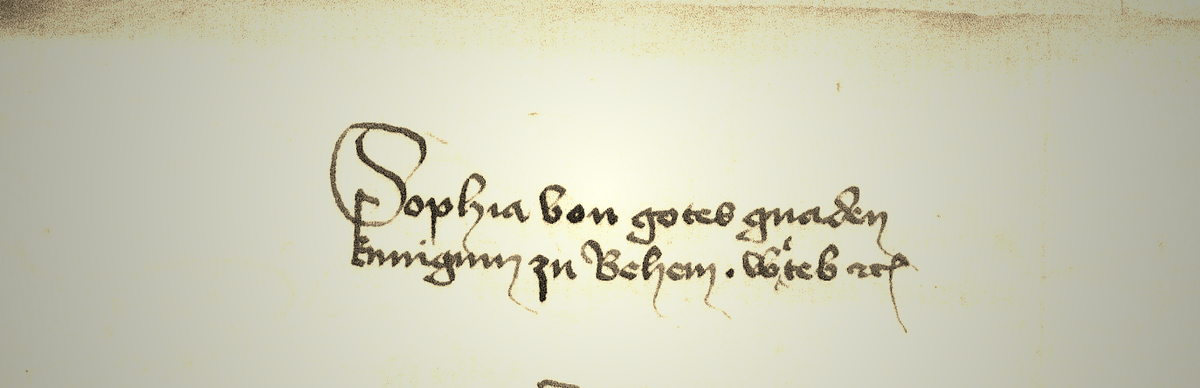 Sophia von gotes gnaden
kunigynn zu Behem . witeb etc